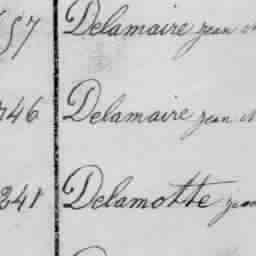 57 Delamaire jean
746 Delamaire jean
241 Delamotte jean